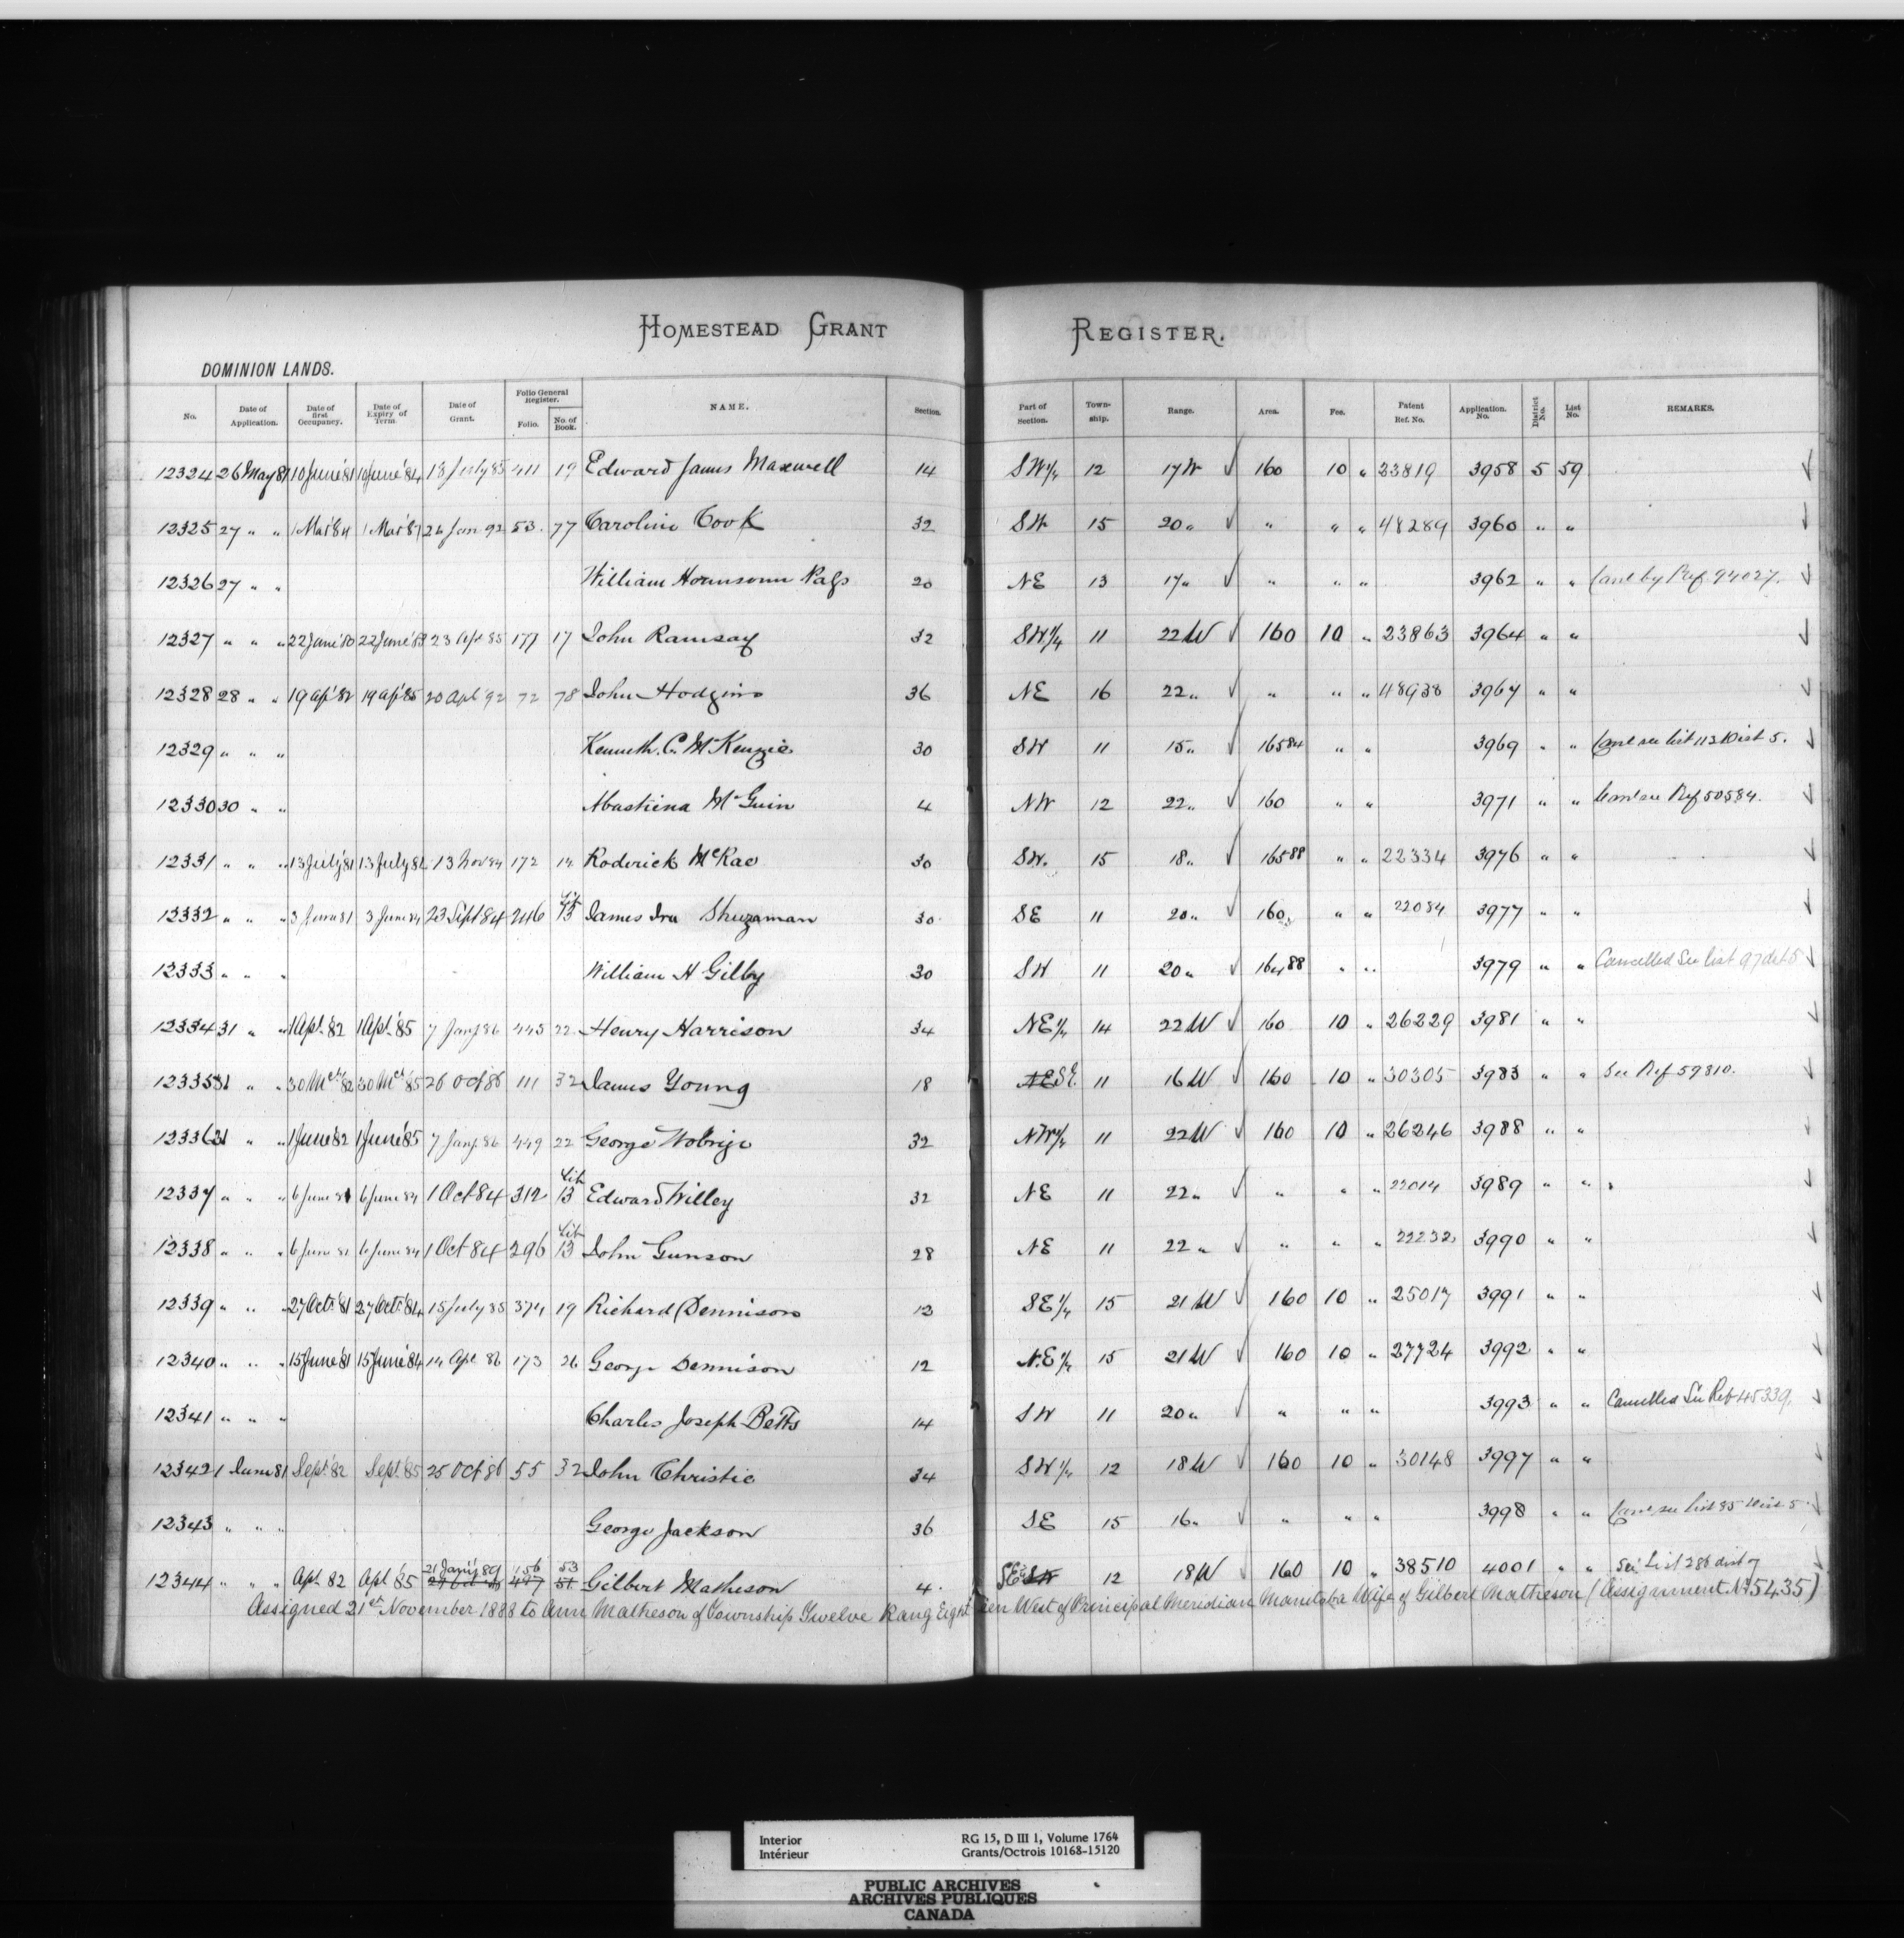 HOMESTEAD GRANT REGISTER.
DOMINION LANDS.
No. Date of Application. Date of first Occupancy. Date of Expiry of Term. Date of Grant. Folio General Register. Folio. No. of Book. NAME. Section. Part of Section. Town-ship. Range. Area. Fee. Patent Ref. No. Application. No. District No. List No. REMARKS.
12324 26 May 81 10 June '81 10 June '84 13 July 85 411 19 Edward James Maxwell 14 SW 1/4 12 17 W √ 160 10 " 23819 3958 5 59
12325 27 " " 1 Mar '84 1 Mar '87 26 Jan 92 53 77 Caroline Cook 32 SW 15 20 " √ " " " 48289 3960 " "
12326 27 " " William 20 NE 13 17 " √ " " " 3962 " " Canl by Ref 94027.
12327 " " " 22 June '80 22 June '83 23 Apl 85 177 17 John Ramsay 32 SW 1/4 11 22 W √ 160 10 " 23863 3964 " "
12328 28 " " 19 Apl '82 19 Apl '85 20 Apl 92 72 78 John Hodgins 36 NE 16 22 " √ " " " 48938 3967 " "
12329 " " " Kenneth. C. McKenzie 30 SW 11 15 " √ 165 84 " " 3969 " " Canl see list 113 Dist 5.
12330 30 " " McGuin 4 NW 12 22 " √ 160 " " 3971 " " Canl see Ref 50584.
12331 " " " 13 July '81 13 July 84 13 Nov 84 172 14 Roderick McRae 30 SW. 15 18 " √ 165 88 " " 22334 3976 " "
12332 " " " 3 June 81 3 June 84 23 Sept 84 246 Lit 13 James Ira 30 SE 11 20 " √ 160 " " 22084 3977 " "
12333 " " " William H Gilby 30 SW 11 20 " √ 164 88 " " 3979 " " Cancelled See list 97 dist 5
12334 31 " " 1 Apl. '82 1 Apl. '85 7 Jany 86 445 22 Henry Harrison 34 NE 1/4 14 22 W √ 160 10 " 26229 3981 " "
12335 31 " " 30 Mch '82 30 Mch '85 26 Oct 86 111 32 James Young 18 NE SE. 11 16 W √ 160 10 " 30305 3983 " " See Ref 59810.
12336 31 " " 1 June '82 1 June '85 7 Jany 86 449 22 George 32 NW 1/4 11 22 W √ 160 10 " 26246 3988 " "
12337 " " " 6 June 81 6 June 84 1 Oct 84 312 Lit 13 Edward Willey 32 NE 11 22 " √ " " " 22014 3989 " "
12338 " " " 6 June 81 6 June 84 1 Oct 84 296 Lit 13 John Gunson 28 NE 11 22 " √ " " " 22232 3990 " "
12339 " " " 27 Oct. '81 27 Oct. '84 15 July 85 374 19 Richard Dennison 12 SE 1/4 15 21 W √ 160 10 " 25017 3991 " "
12340 " " " 15 June '81 15 June '84 14 Apl 86 173 26 George Dennison 12 N.E 1/4 15 21 W √ 160 10 " 27724 3992 " "
12341 " " " Charles Joseph Betts 14 SW 11 20 " √ " " " 3993 " " Cancelled See Ref 45339,
12342 1 June 81 Sept. '82 Sept. '85 25 Oct '86 55 32 John Christie 34 SW 1/4 12 18 W √ 160 10 " 30148 3997 " "
12343 " " " George Jackson 36 SE 15 16 " √ " " " 3998 " " Canl see list 85 Dist 5
12344 " " " Apl. 82 Apl '85 21 Jany '89 156 497 53 51 Gilbert Matheson 4. SE SW 12 18 W √ 160 10 " 38510 4001 " " See List 286 dist 7
Assigned 21st November 1888 to Ann Matheson of Township Twelve Rang Eighteen West of Principal Meridian Manitoba Wife of Gilbert Matheson (Assignment No 5435)
Interior RG 15, D III 1, Volume 1764
Intérieur Grants/Octrois 10168-15120
PUBLIC ARCHIVES
ARCHIVES PUBLIQUES
CANADA